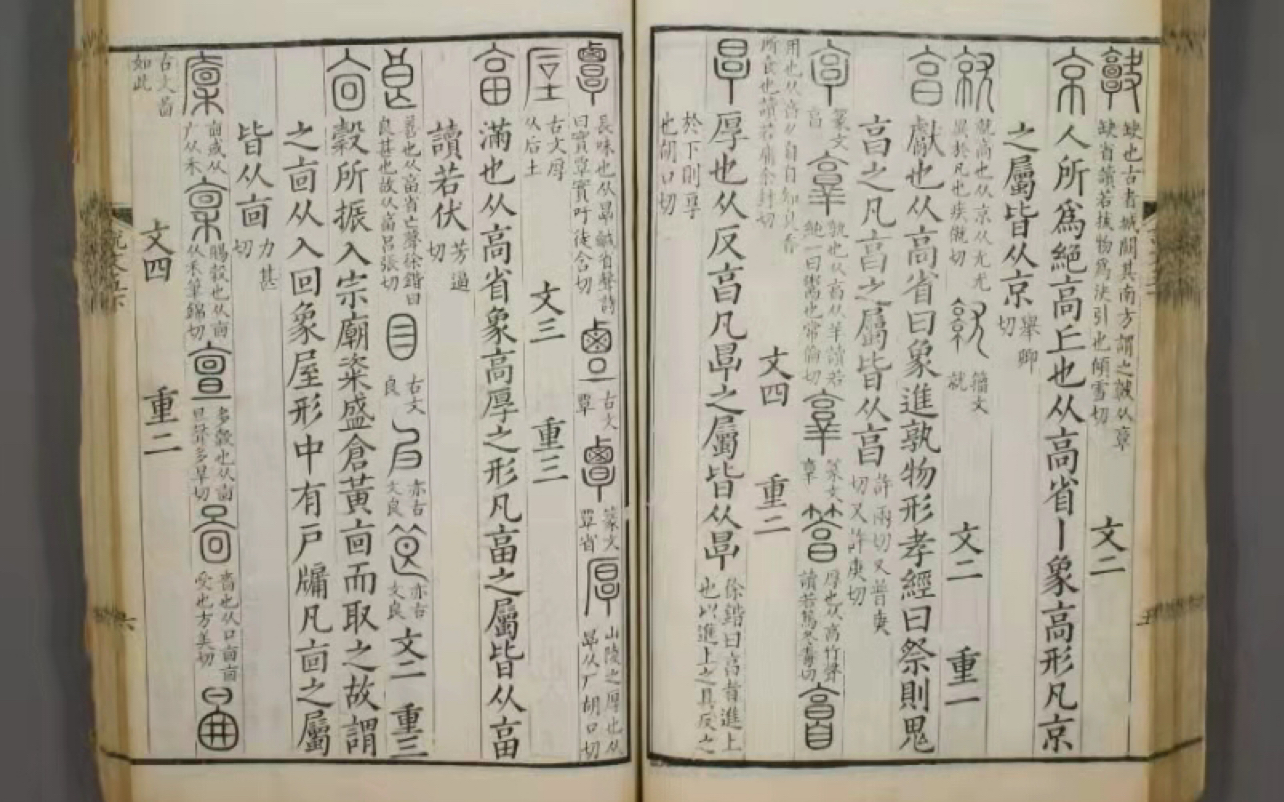 𩫏缺也古者城闕其南方謂之𩫏从𩫏
缺省讀若拔物爲決引也傾雪切
文二
京人所爲絕高丘也从高省丨象高形凡京
之屬皆从京舉卿切
就就高也从京从尤尤異於凡也疾僦切 籒文就
文二 重一
亯獻也从高省曰象進孰物形孝經曰祭則鬼
亯之凡亯之屬皆从亯許兩切又普庚切又許庚切
篆文亯 𦎫孰也从亯从羊讀若純一曰鬻也常倫切 篆文𦎫 䈞厚也从亯竹聲讀若篤冬毒切 𩫞
用也从亯从自自知臭香所食也讀若庸余封切
文四 重二
㫗厚也从反亯凡㫗之屬皆从㫗徐鍇曰亯者進上也以進上之具反之
於下則厚也胡口切
覃長味也从㫗鹹省聲詩曰實覃實吁徒含切 古文覃 篆文覃省 厚山陵之厚也从㫗从厂胡口切
垕古文厚从后土
文三 重三
畗滿也从高省象高厚之形凡畗之屬皆从畗
讀若伏芳逼切
良善也从畗省亡聲徐鍇曰良甚也故从畗呂張切 古文良 亦古文良 亦古文良 文二 重三
㐭穀所振入宗廟粢盛倉黃㐭而取之故謂
之㐭从入回象屋形中有戶牖凡㐭之屬
皆从㐭力甚切
㐭或从广从禾 稟賜穀也从㐭从禾筆錦切 亶多穀也从㐭旦聲多旱切 啚嗇也从口㐭㐭受也方美切
古文啚如此
文四 重二